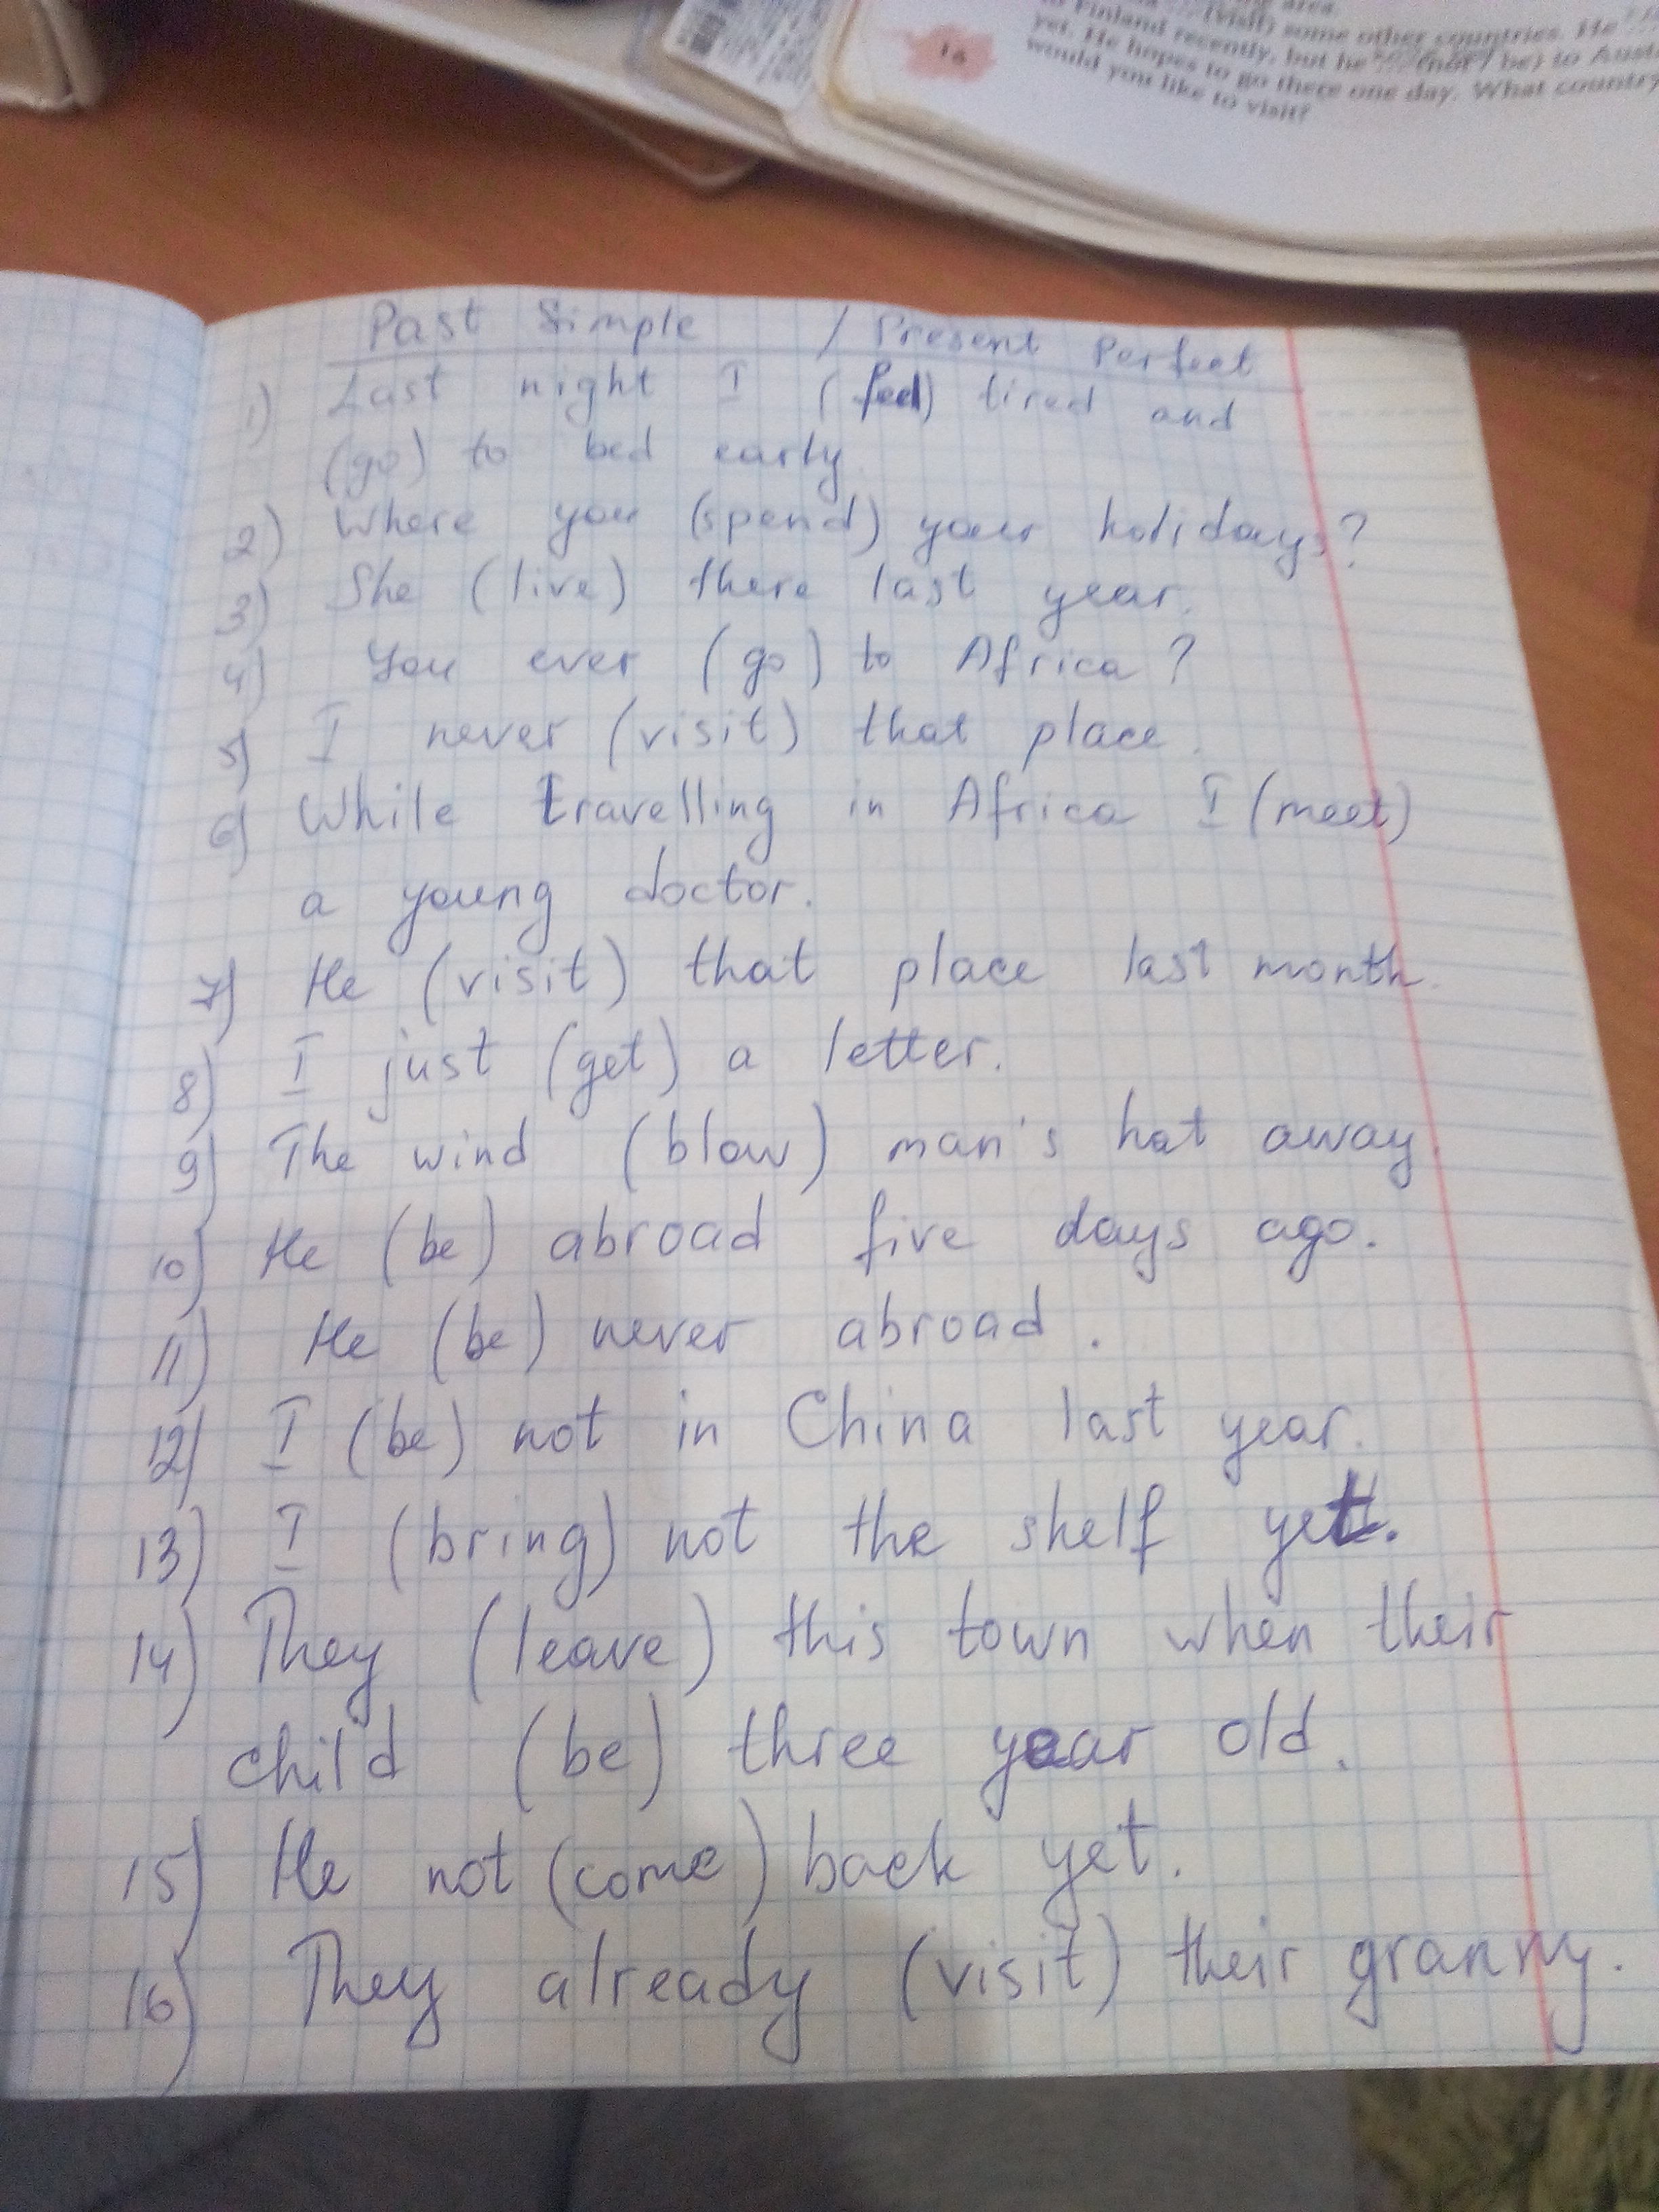 area.
(visit) some other countries. He
Finland recently, but he (not / be) to
yet. He hopes to go there one day. What country
would you like to visit?
1a
Past Simple / Present Perfect
1) Last night I (feel) tired and
(go) to bed early
2) Where you (spend) your holidays?
3) She (live) there last year.
4) You ever (go) to Africa?
5) I never (visit) that place.
6) While travelling in Africa I (meet)
a young doctor.
7) He (visit) that place last month.
8) I just (get) a letter.
9) The wind (blow) man's hat away.
10) He (be) abroad five days ago.
11) He (be) never abroad.
12) I (be) not in China last year.
13) I (bring) not the shelf yet.
14) They (leave) this town when their
child (be) three year old.
15) He not (come) back yet.
16) They already (visit) their granny.